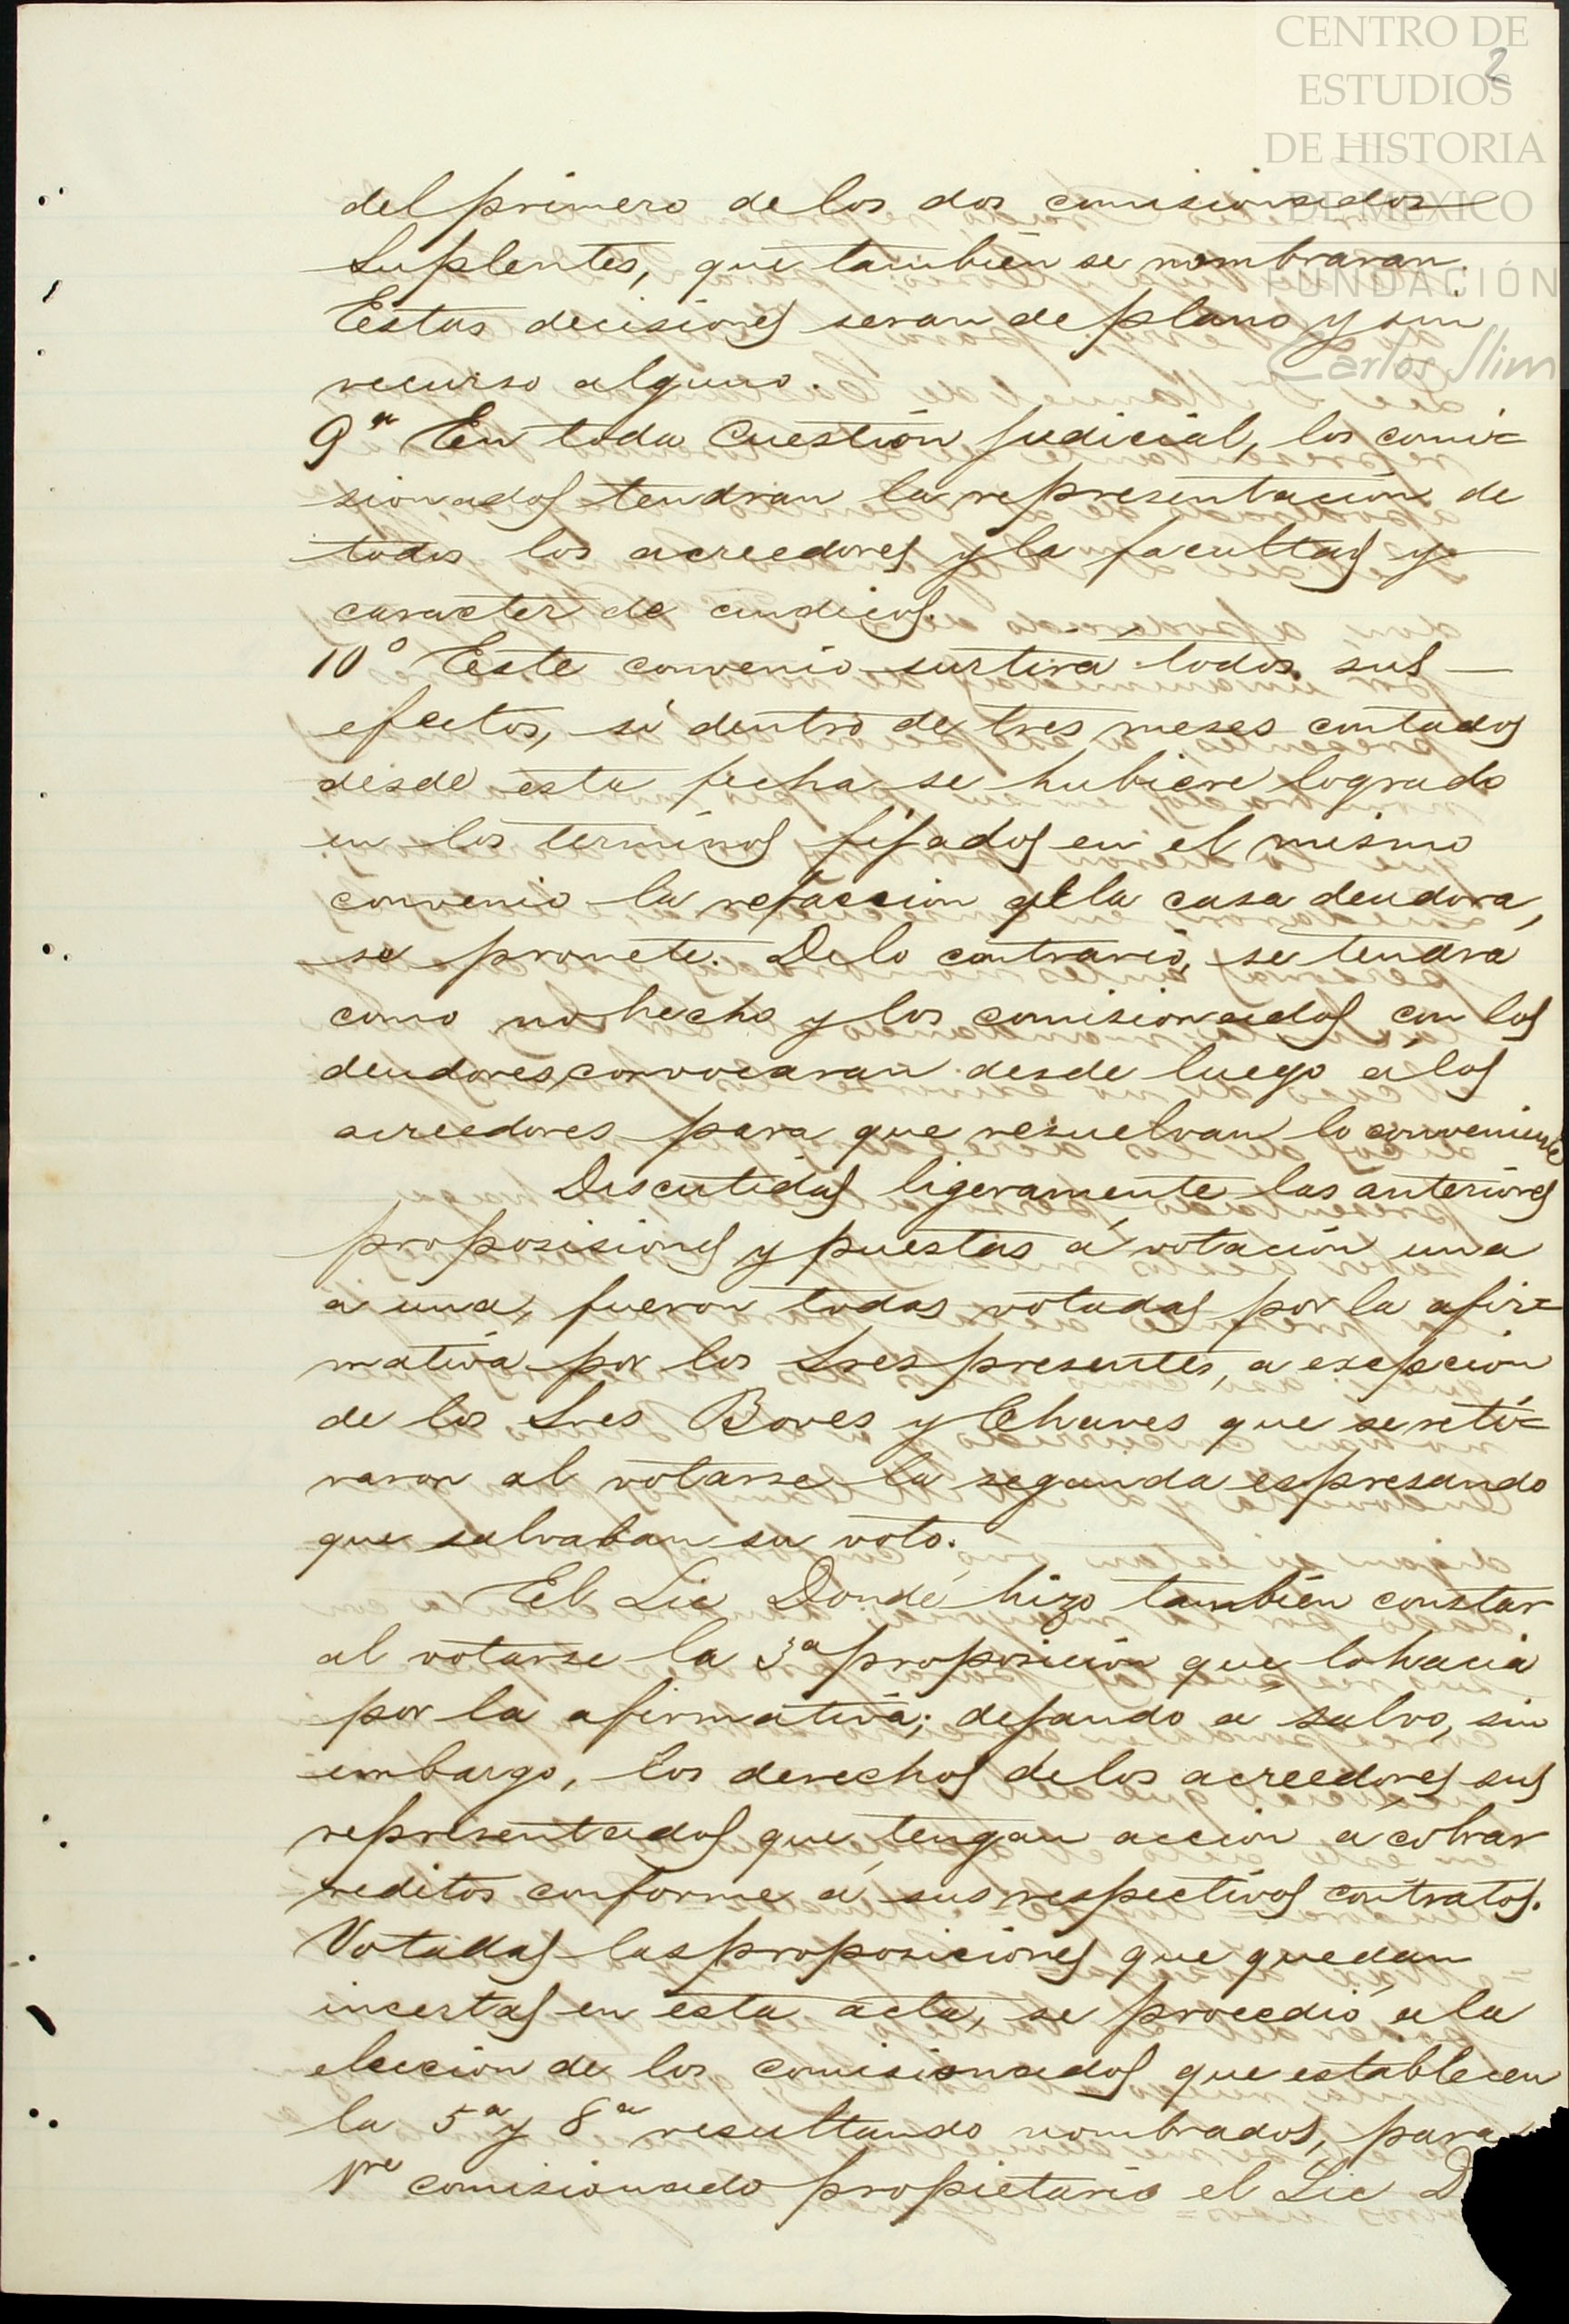 CENTRO DE
ESTUDIOS
DE HISTORIA
DE MEXICO
FUNDACIÓN
Carlos Slim
2
del primero de los dos comisionados
Suplentes, que también se nombraran.
Estas decisiones seran de plano y sin
recurso alguno.
9ª En toda Cuestión judicial, los comi=
sionados tendran la representación de
todos los acreedores y la facultad y
caracter de cindicos.
10º Este convenio surtira todos sus
efectos, si dentro de tres meses contados
desde esta fecha se hubiere logrado
en los terminos fijados en el mismo
convenio la refaccion qe la casa deudora,
se promete. De lo contrario, se tendra
como no hecho y los comisionados con los
deudores, convocaran desde luego á los
acreedores para que resuelvan lo conveniente
Discutidas ligeramente las anteriores
proposisiones y puestas á votación una
a una, fueron todas votadas por la afir=
mativa por los Sres presentes, a excepcion
de los Sres Bores y Chaves que se reti=
raron al votarse la segunda espresando
que salvaban su voto.
El Lic Dondé hizo también constar
al votarse la 3ª proposición que lo hacia
por la afirmativa; dejando a salvo, sin
embargo, los derechos de los acreedores sus
representados que tengan accion á cobrar
reditos conforme á sus respectivos contratos.
Votadas las proposiciones que quedan
incertas en esta acta, se procedió a la
elección de los comisionados que establecen
la 5ª y 8ª resultando nombrados, para
1re comisionado propietario el Lic D